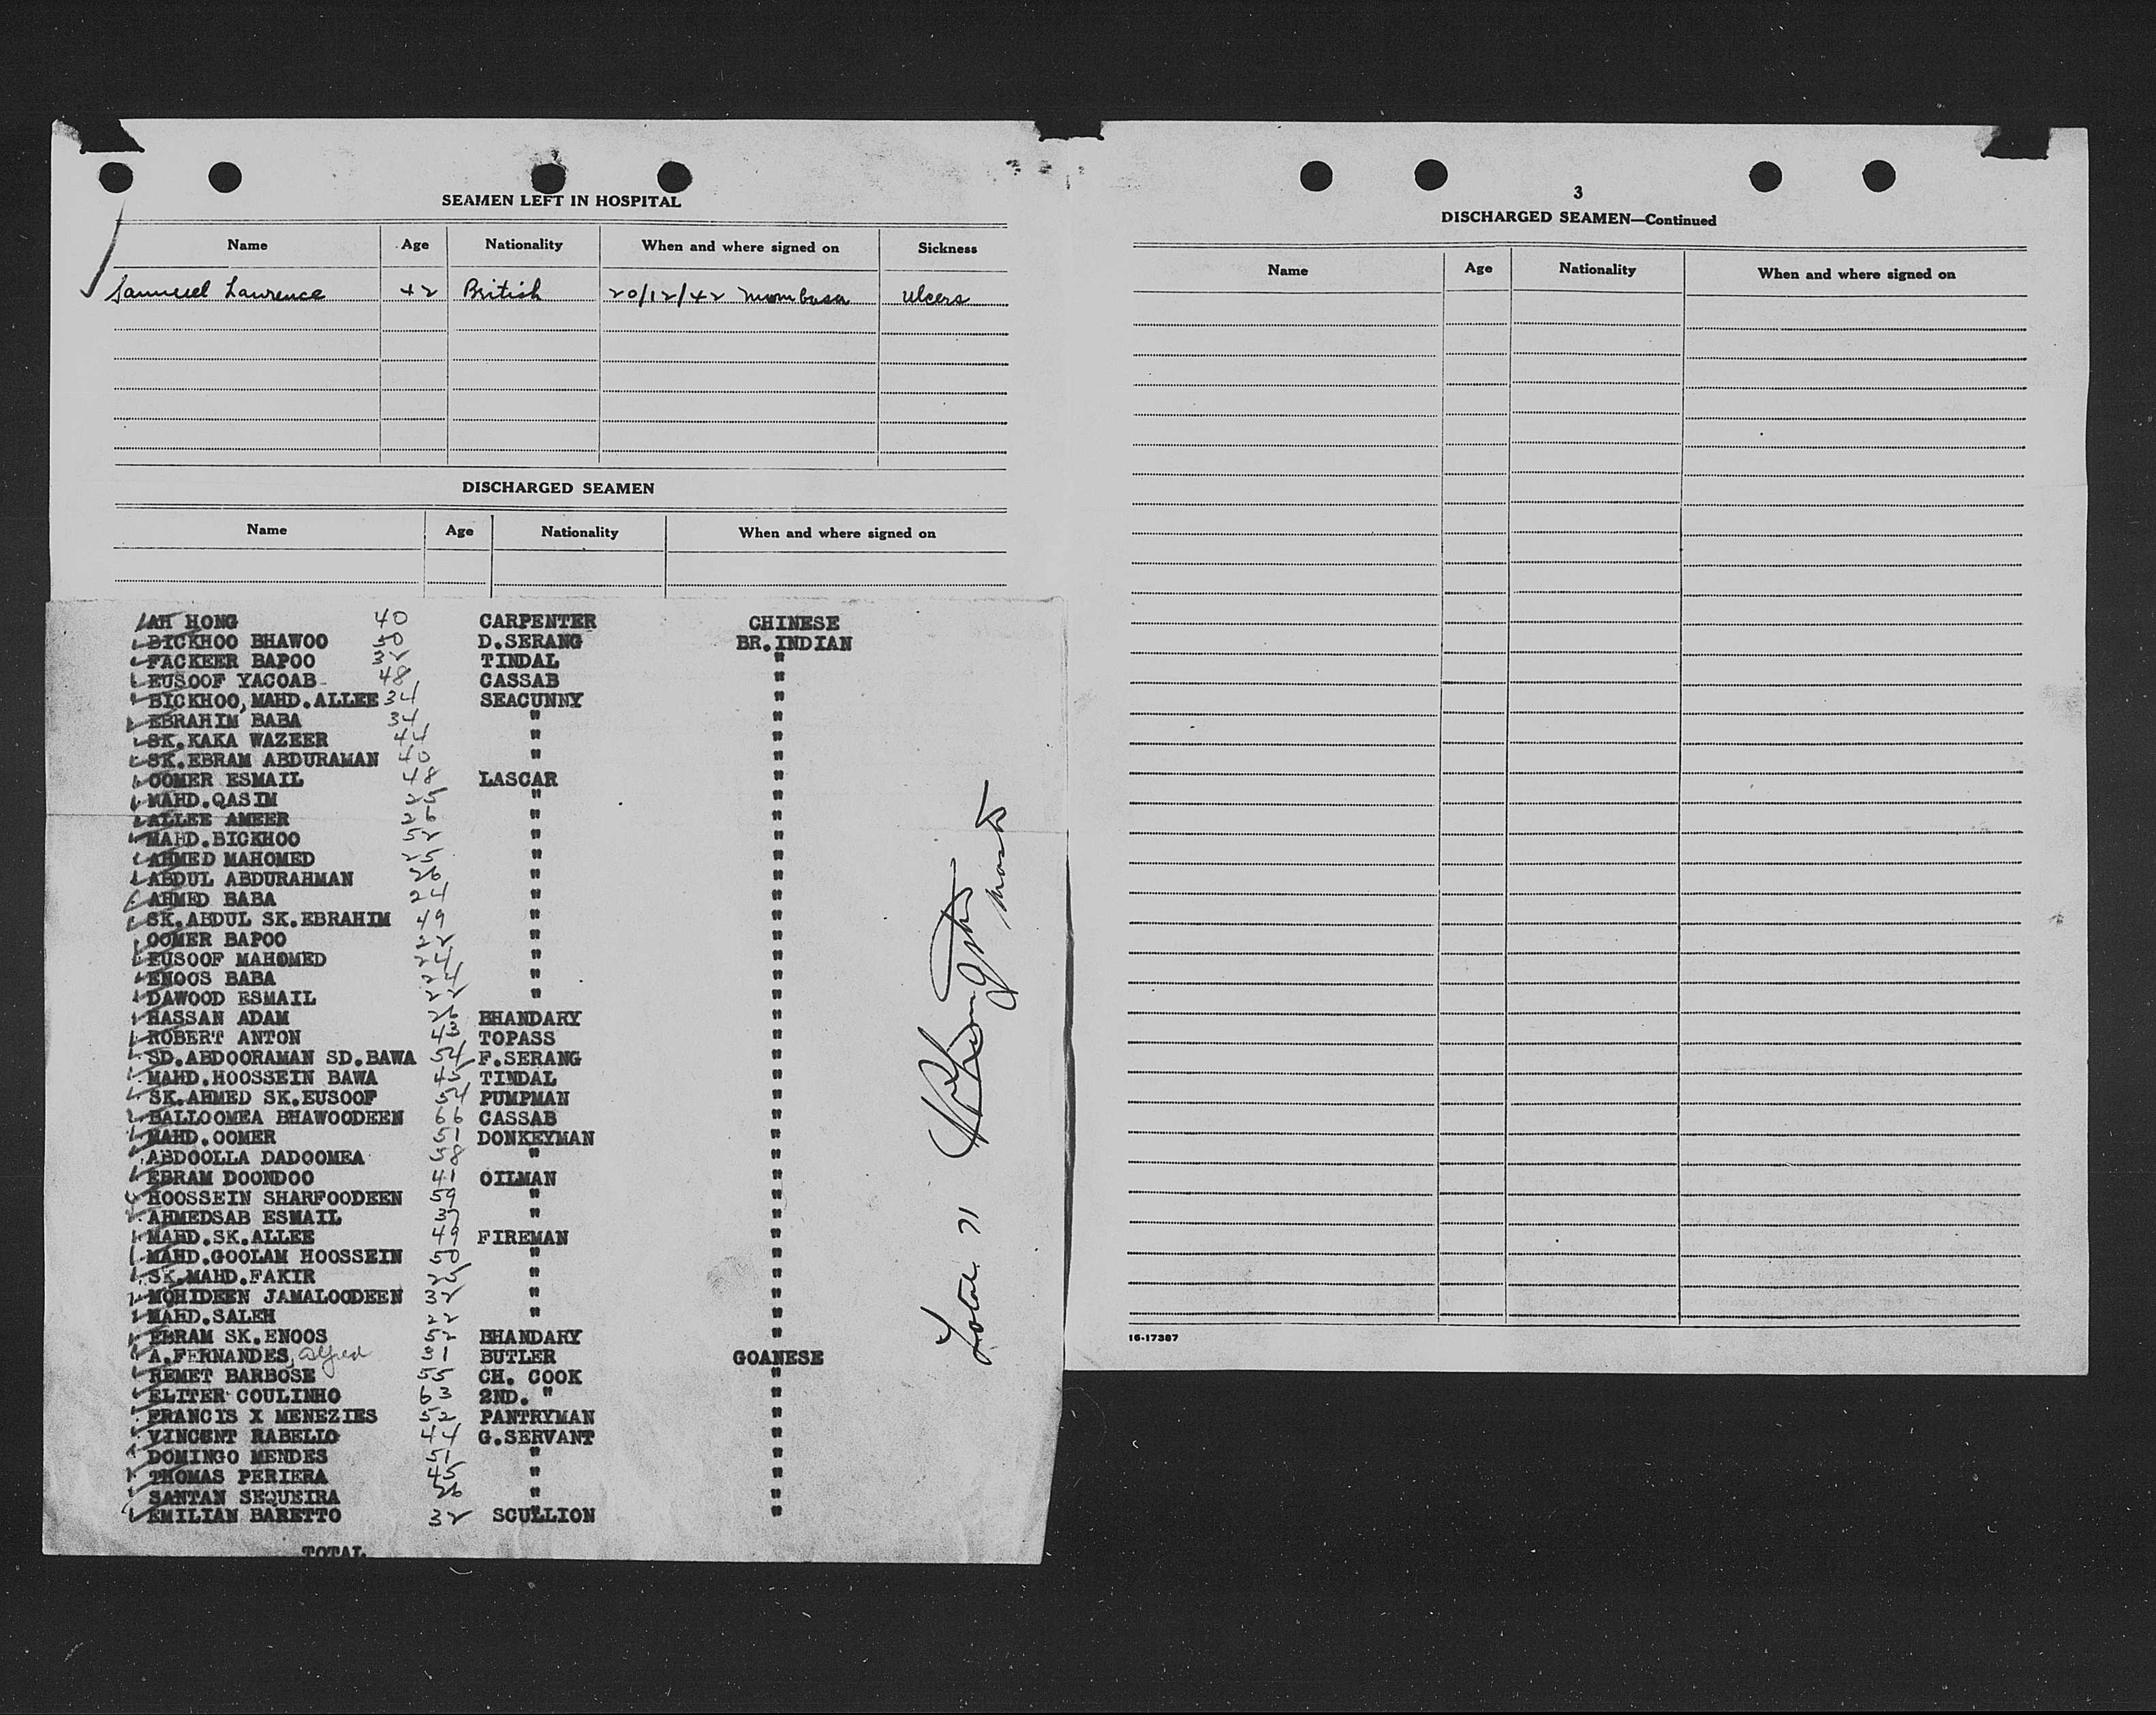 SEAMEN LEFT IN HOSPITAL
Name Age Nationality When and where signed on Sickness
Samuel Lawrence 42 British 20/12/42 Mombasa Ulcers
DISCHARGED SEAMEN
Name Age Nationality When and where signed on
AH HONG 40 CARPENTER CHINESE
BICKHOO BHAWOO 50 D.SERANG BR.INDIAN
FACKEER BAPOO 32 TINDAL "
EUSOOF YACOAB 48 CASSAB "
BICKHOO, MAHD.ALLEE 34 SEACUNNY "
EBRAHIM BABA 34 " "
SK.KAKA WAZEER 44 " "
SK.EBRAM ABDURAMAN 40 " "
OOMER ESMAIL 48 LASCAR "
MAHD.QASIM 25 " "
ALLEE AMEER 26 " "
MAHD.BICKHOO 52 " "
AHMED MAHOMED 25 " "
ABDUL ABDURAHMAN 26 " "
AHMED BABA 24 " "
SK.ABDUL SK.EBRAHIM 49 " "
OOMER BAPOO 22 " "
EUSOOF MAHOMED 24 " "
ENOOS BABA 24 " "
DAWOOD ESMAIL 22 " "
HASSAN ADAM 26 BHANDARY "
ROBERT ANTON 43 TOPASS "
SD.ABDOORAMAN SD.BAWA 54 F.SERANG "
MAHD.HOOSSEIN BAWA 45 TINDAL "
SK.AHMED SK.EUSOOF 54 PUMPMAN "
BALLOOMEA BHAWOODEEN 66 CASSAB "
MAHD.OOMER 51 DONKEYMAN "
ABDOOLLA DADOOMEA 58 " "
EBRAM DOONDOO 41 OILMAN "
HOOSSEIN SHARFOODEEN 59 " "
AHMEDSAB ESMAIL 37 " "
MAHD.SK.ALLEE 49 FIREMAN "
MAHD.GOOLAM HOOSSEIN 50 " "
SK.MAHD.FAKIR 25 " "
MOHIDEEN JAMALOODEEN 32 " "
MAHD.SALEH 22 " "
EBRAM SK.ENOOS 52 BHANDARY "
A.FERNANDES, Alfred 31 BUTLER GOANESE
REMET BARBOSE 55 CH. COOK "
ELITER COULINHO 63 2ND. " "
FRANCIS X MENEZIES 52 PANTRYMAN "
VINCENT RABELLO 44 G.SERVANT "
DOMINGO MENDES 51 " "
THOMAS PERIERA 45 " "
SANTAN SEQUEIRA 26 " "
EMILIAN BARETTO 32 SCULLION "
TOTAL
Total 71
Master
3
DISCHARGED SEAMEN—Continued
Name Age Nationality When and where signed on
16-17387